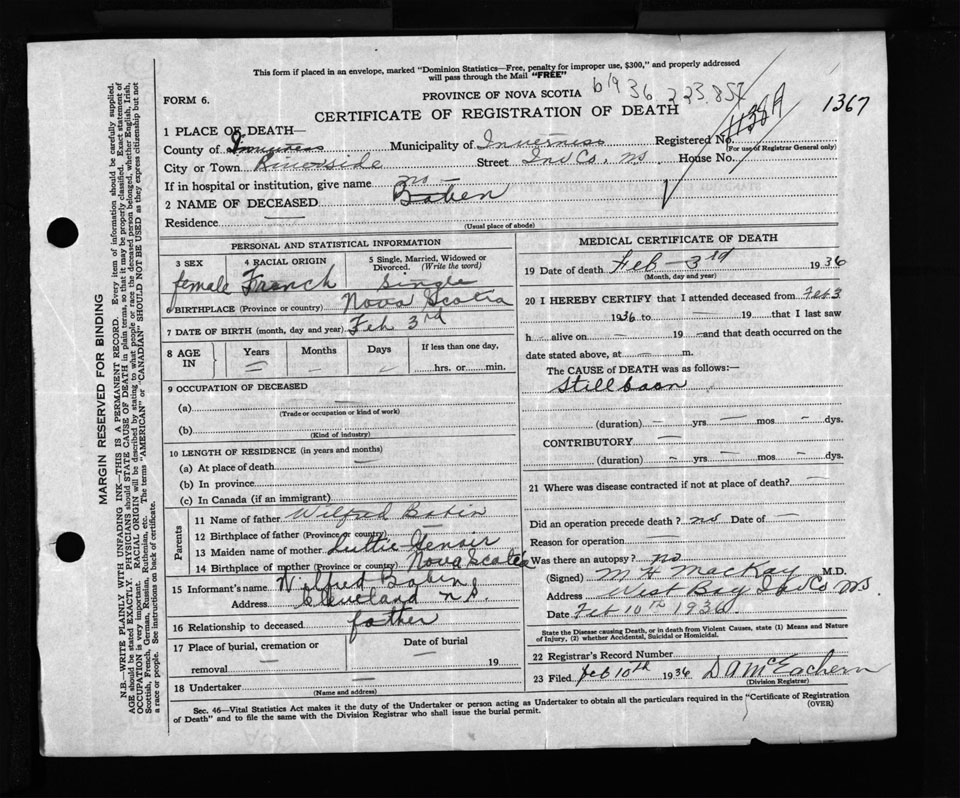 This form if placed in an envelope, marked "Dominion Statistics—Free, penalty for improper use, $300," and properly addressed
will pass through the Mail "FREE"
FORM 6.
PROVINCE OF NOVA SCOTIA
b/9 36 223.857
1138A
1367
CERTIFICATE OF REGISTRATION OF DEATH
1 PLACE OF DEATH—
County of Inverness Municipality of Inverness Registered No.
(For use of Registrar General only)
City or Town Riverside Street Inv Co. NS. House No.
If in hospital or institution, give name no —
2 NAME OF DECEASED Baben
Residence —
(Usual place of abode)
PERSONAL AND STATISTICAL INFORMATION
3 SEX female
4 RACIAL ORIGIN French
5 Single, Married, Widowed or Divorced. (Write the word) Single
6 BIRTHPLACE (Province or country) Nova Scotia
7 DATE OF BIRTH (month, day and year) Feb 3rd
8 AGE IN Years Months Days If less than one day,
hrs. or min.
9 OCCUPATION OF DECEASED
(a) —
(Trade or occupation or kind of work)
(b)
(Kind of industry)
10 LENGTH OF RESIDENCE (in years and months)
(a) At place of death —
(b) In province
(c) In Canada (if an immigrant)
Parents
11 Name of father Wilfred Babin
12 Birthplace of father (Province or country) —
13 Maiden name of mother
14 Birthplace of mother (Province or country) Nova Scotia
15 Informant's name Wilfred Babin
Address Cleveland N.S.
16 Relationship to deceased father
17 Place of burial, cremation or removal — Date of burial — 19
18 Undertaker —
(Name and address)
MEDICAL CERTIFICATE OF DEATH
19 Date of death Feb — 3rd 1936
(Month, day and year)
20 I HEREBY CERTIFY that I attended deceased from Feb 3
1936 to — 19 — that I last saw
h alive on — 19 —and that death occurred on the
date stated above, at — m.
The CAUSE of DEATH was as follows:—
Stillboon
(duration) — yrs — mos — dys.
CONTRIBUTORY —
(duration) — yrs — mos — dys.
21 Where was disease contracted if not at place of death? —
Did an operation precede death? no Date of —
Reason for operation —
Was there an autopsy? no
(Signed) M H MacKay M.D.
Address West Bay In Co NS
Date Feb 10th 1936
State the Disease causing Death, or in death from Violent Causes, state (1) Means and Nature
of Injury, (2) whether Accidental, Suicidal or Homicidal.
22 Registrar's Record Number
23 Filed Feb 10th 1936 D A McEachern
(Division Registrar)
Sec. 46—Vital Statistics Act makes it the duty of the Undertaker or person acting as Undertaker to obtain all the particulars required in the "Certificate of Registration
of Death" and to file the same with the Division Registrar who shall issue the burial permit.
(OVER)
MARGIN RESERVED FOR BINDING
N.B.—WRITE PLAINLY WITH UNFADING INK—THIS IS A PERMANENT RECORD. Every item of information should be carefully supplied.
AGE should be stated EXACTLY. PHYSICIANS should STATE CAUSE OF DEATH in plain terms, so that it may be properly classified. Exact statement of
OCCUPATION is very important. RACIAL ORIGIN will be described by stating to what people or race the deceased person belonged, whether English, Irish,
Scottish, French, German, Russian, Ruthenian, etc. The terms "AMERICAN" or "CANADIAN" SHOULD NOT BE USED as they express citizenship but not
a race or people. See instructions on back of certificate.